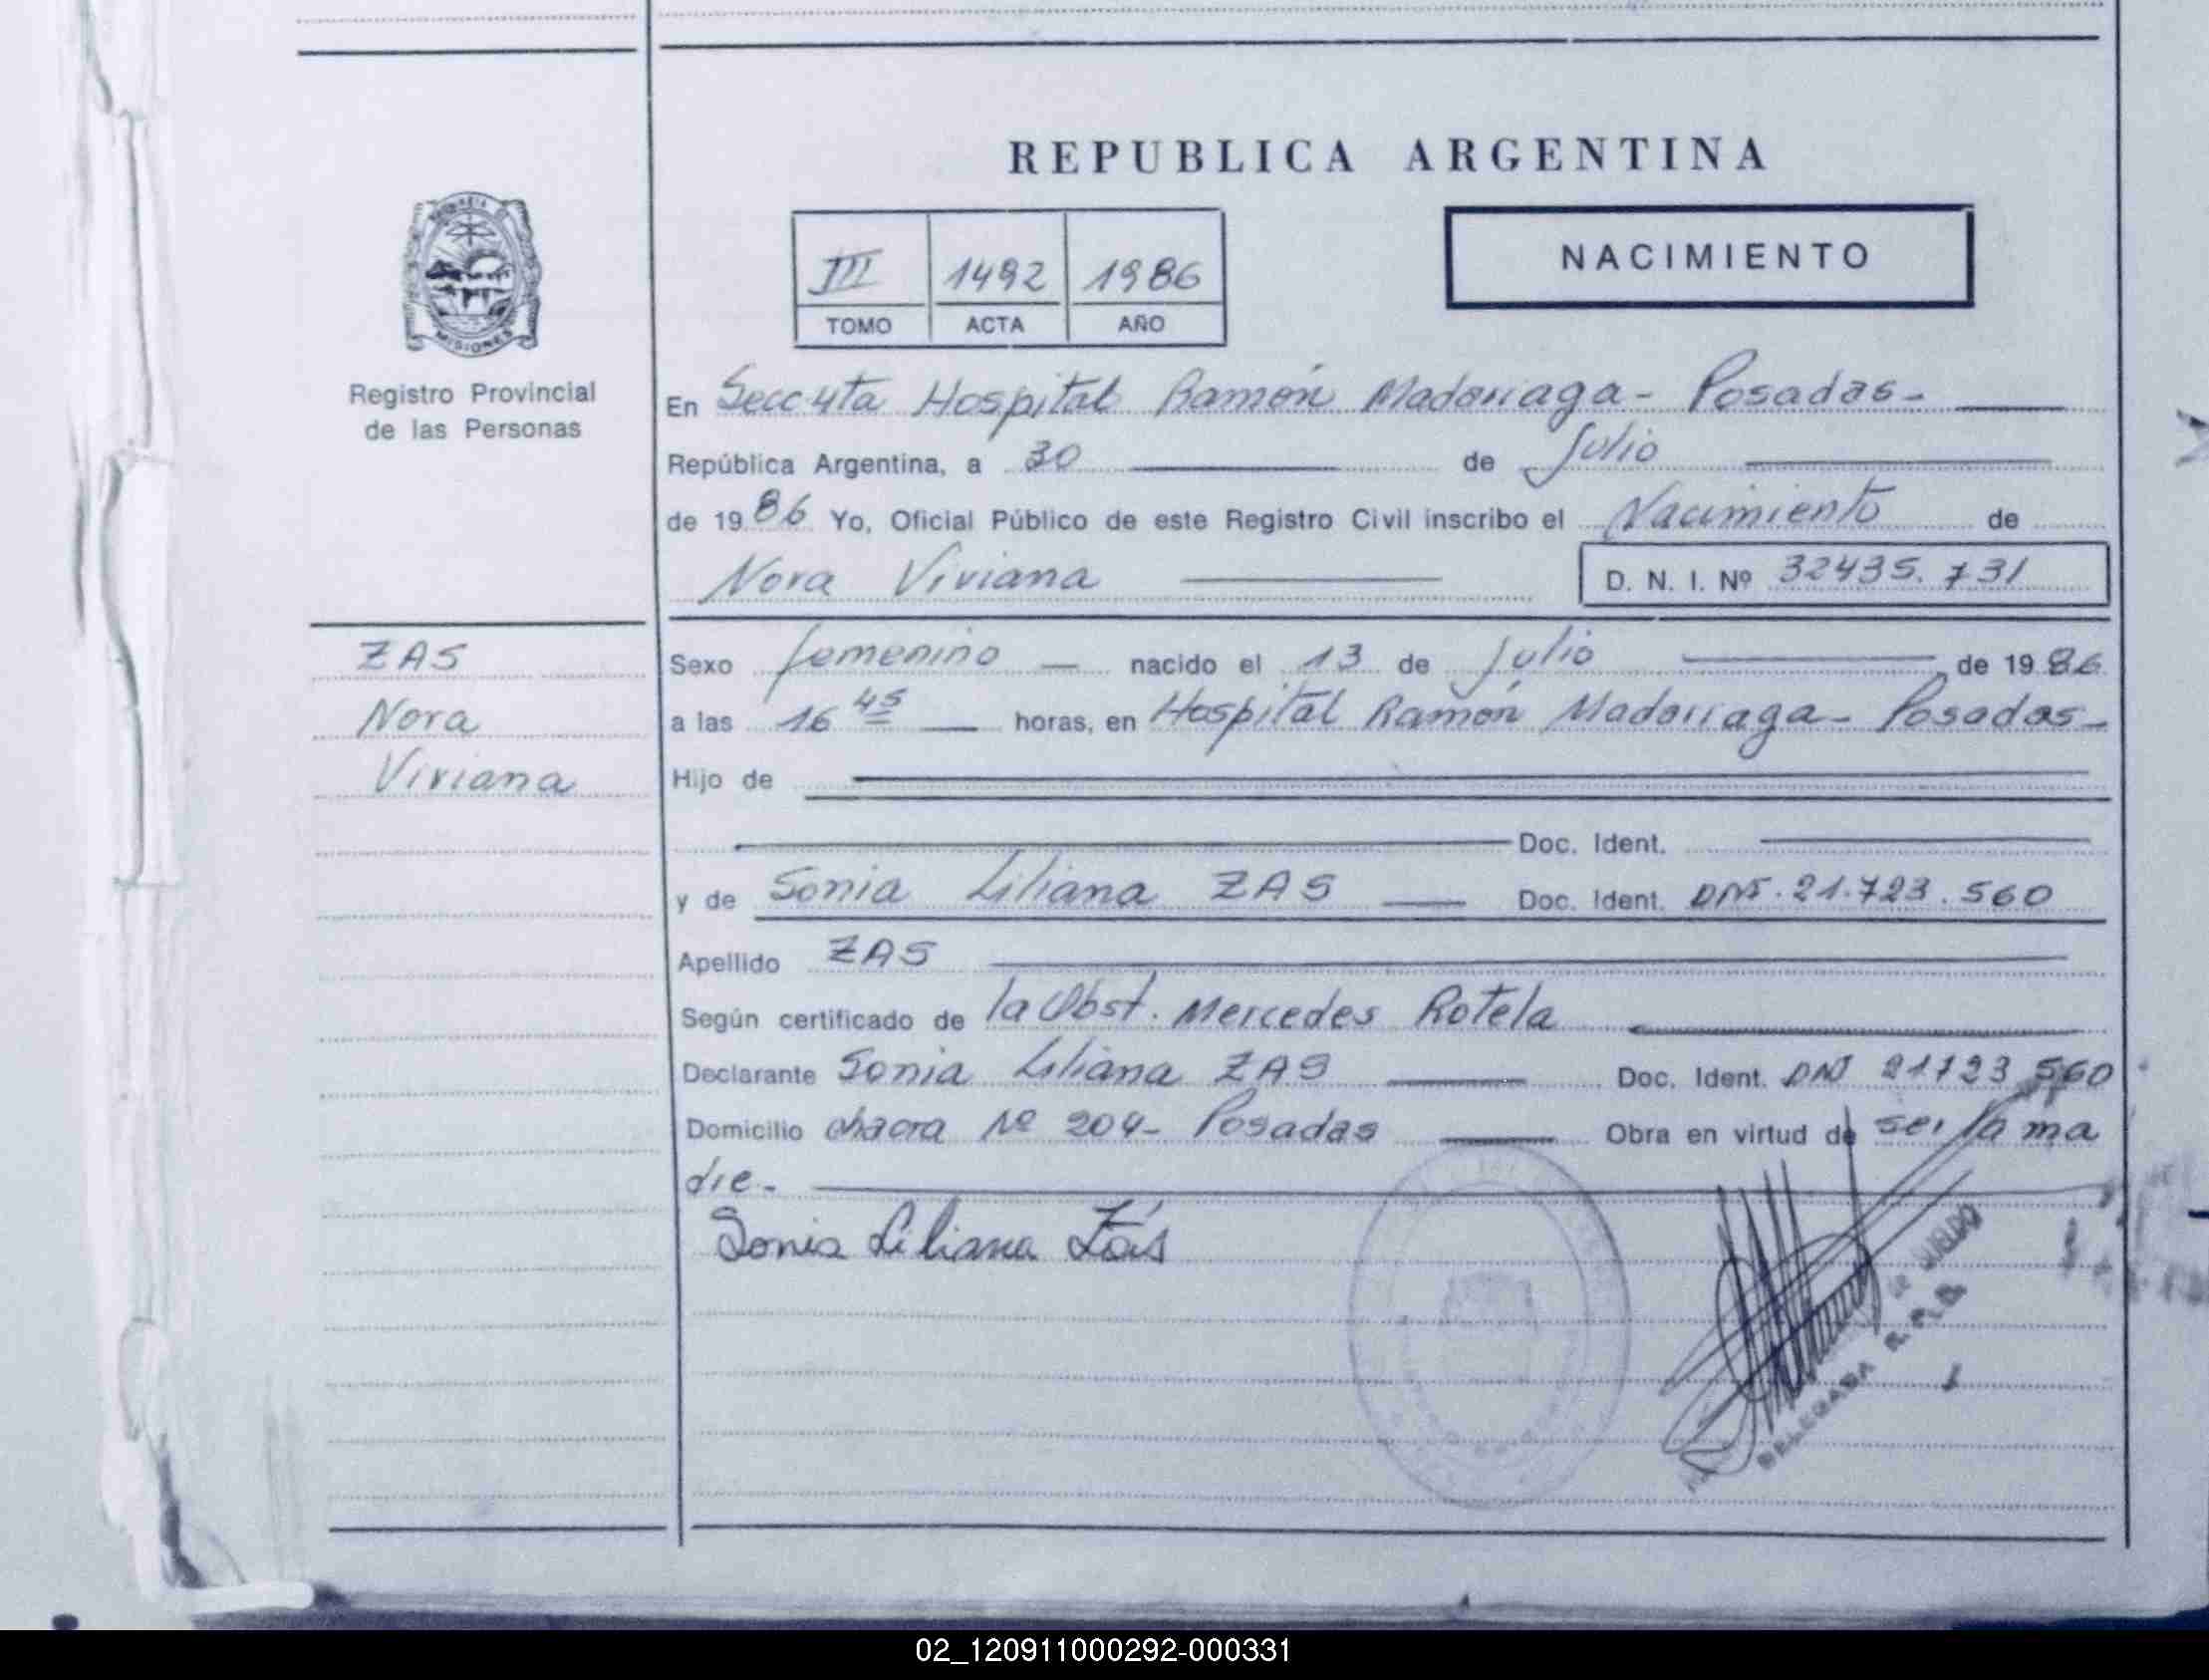 REPUBLICA ARGENTINA
III 1492 1986
TOMO ACTA AÑO
NACIMIENTO
MISIONES
Registro Provincial
de las Personas
En Secc 4ta Hospital Ramón Madariaga - Posadas -
República Argentina, a 30 de Julio
de 1986 Yo, Oficial Público de este Registro Civil inscribo el Nacimiento de
Nora Viviana D. N. I. Nº 32435.731
ZAS
Nora
Viviana
Sexo femenino nacido el 13 de Julio de 1986
a las 16 45 horas, en Hospital Ramón Madariaga - Posadas -
Hijo de
Doc. Ident.
y de Sonia Liliana ZAS Doc. Ident. DNI. 21.723.560
Apellido ZAS
Según certificado de la Obst. Mercedes Rotela
Declarante Sonia Liliana ZAS Doc. Ident. DNI 21723 560
Domicilio chacra Nº 204 - Posadas Obra en virtud de ser la ma
dre -
Sonia Liliana Zás
DELEGADA R.P.P.
02_120911000292-000331